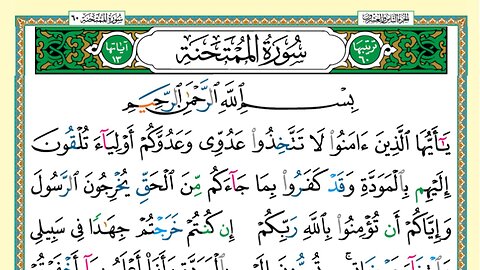 سورة الممتحنة ٦٠ الجزء الثامن والعشرون
آياتها ١٣ سُورَةُ المُمْتَحَنَةِ ترتيبها ٦٠
بِسْمِ ٱللَّهِ ٱلرَّحْمَٰنِ ٱلرَّحِيمِ
يَٰٓأَيُّهَا ٱلَّذِينَ ءَامَنُوا۟ لَا تَتَّخِذُوا۟ عَدُوِّى وَعَدُوَّكُمْ أَوْلِيَآءَ تُلْقُونَ
إِلَيْهِم بِٱلْمَوَدَّةِ وَقَدْ كَفَرُوا۟ بِمَا جَآءَكُم مِّنَ ٱلْحَقِّ يُخْرِجُونَ ٱلرَّسُولَ
وَإِيَّاكُمْ أَن تُؤْمِنُوا۟ بِٱللَّهِ رَبِّكُمْ إِن كُنتُمْ خَرَجْتُمْ جِهَٰدًا فِى سَبِيلِى